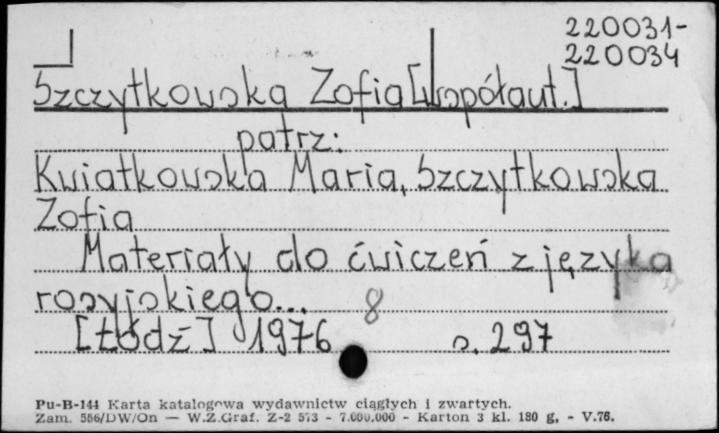 220031-
220034
Szczytkowska Zofia [współaut.]
patrz:
Kwiatkowska Maria, Szczytkowska
Zofia
Materiały do ćwiczeń z języka
rosyjskiego... 8
[Łódź] 1976 s. 297
Pu-B-144 Karta katalogowa wydawnictw ciągłych i zwartych.
Zam. 556/DW/On — W.Z.Graf. Z-2 573 - 7.000.000 - Karton 3 kl. 180 g, - V.76.